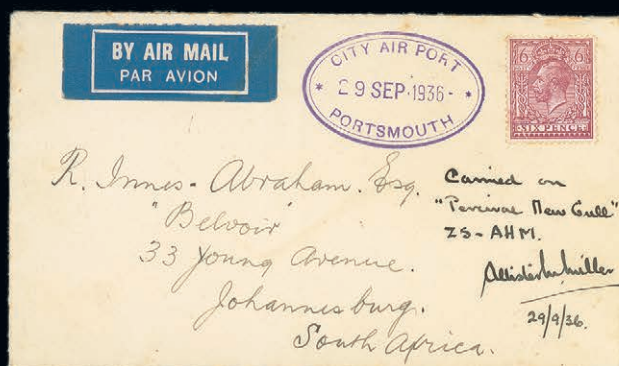 BY AIR MAIL
PAR AVION
CITY AIR PORT
* 29 SEP·1936- *
PORTSMOUTH
6 6
SIX PENCE
R. Innes-Abraham. Esq.
"Belvoir"
33 Young Avenue.
Johannesburg.
South Africa.
Carried on
"Percival Mew Gull"
ZS-AHM.
Allister M. Miller
29/9/36.